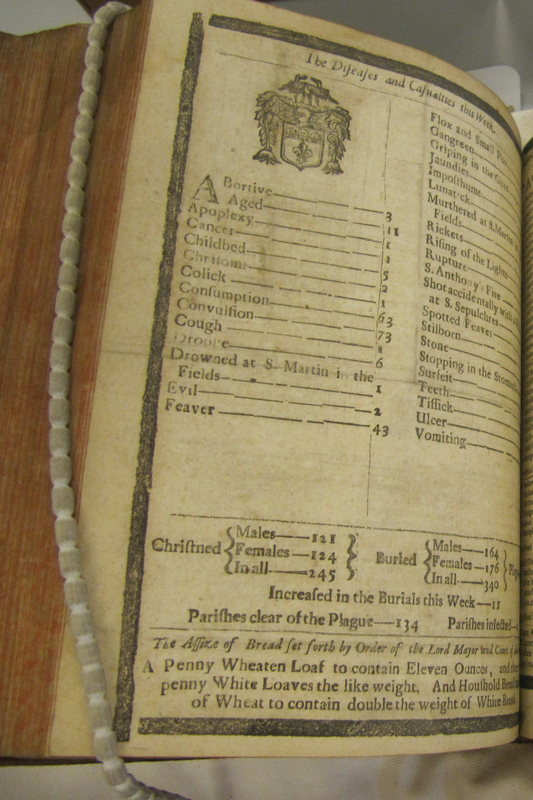 The Diſeaſes and Caſualties this Week.
ABortive—3
Aged—11
Apoplexy—1
Cancer—1
Childbed—5
Chriſoms—2
Colick—1
Conſumption—63
Convulſion—73
Cough—1
Dropſie—6
Drowned at S. Martin in the
Fields—1
Evil—2
Feaver—43
Flox and Small Pox
Gangreen
Griping in the Guts
Jaundies
Impoſthume
Lunatick
Murthered at S. Martin
Fields
Rickets
Riſing of the Lights
Rupture
S. Anthony Fire
Shot accidentally with a
at S. Sepulchres
Spotted Feaver
Stilborn
Stone
Stopping in the Stomach
Surfeit
Teeth
Tiſſick
Ulcer
Vomiting
Chriſtned { Males—121
Females—124
In all—245 }
Buried { Males—164
Females—176
In all—340 }
Increaſed in the Burials this Week—11
Pariſhes clear of the Plague—134 Pariſhes infected
The Aſſize of Bread ſet forth by Order of the Lord Major and Court of
A Penny Wheaten Loaf to contain Eleven Ounces, and
penny White Loaves the like weight. And Houſhold
of Wheat to contain double the weight of White